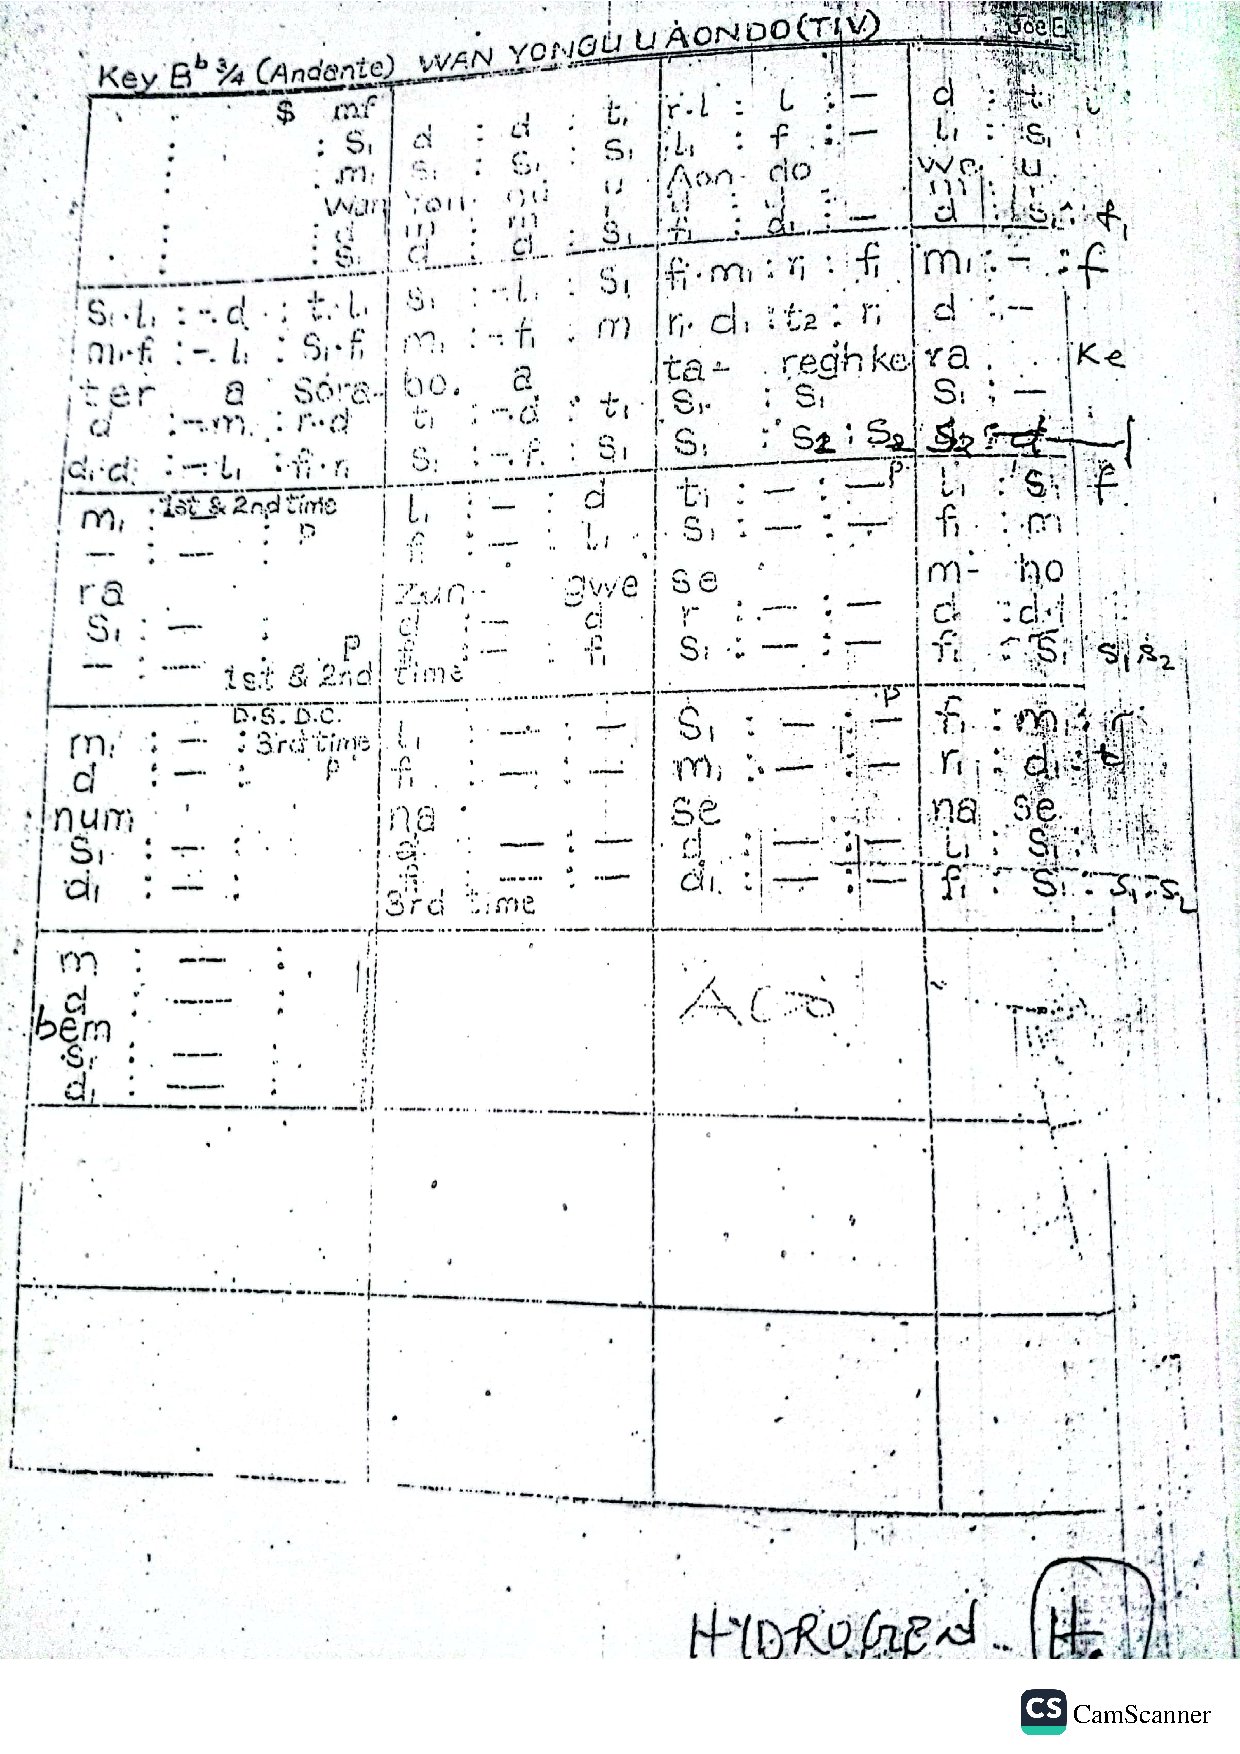 Joe E
Key B♭ 3/4 (Andante) WAN YONGU U AONDO (TIV)
$ mf d : d : t₁ r.l : l : — d : t
: S₁ S₁ : S₁ : S₁ l₁ : f : — l₁ : S₁
: m₁ Aon- do we u
wan Yon- gu u
: d m m d : S₁ : f₁
: S₁ d : d : S₁ f₁ : d₁ : —
S₁.l₁ : -.d : t₁.l₁ S₁ : -.l₁ : S₁ f₁.m₁ : r₁ : f₁ m₁ : - : f
m₁.f₁ : -.l₁ : S₁.f₁ m₁ : -.f₁ : m r₁.d₁ : t₂ : r₁ d : —
ter a sôra- bo. a ta- reghke ra. Ke
d : -.m : r.d t₁ : -.d : t₁ S₁ : S₁ S₁ : —
d₁.d₁ : -.l₁ : f₁.r₁ S₁ : -.f₁ : S₁ S₁ : S₂ : S₂ S₂ : d
m₁ : 1st & 2nd time l₁ : — : d t₁ : — : — p l₁ : S₁ f
— : — : p f₁ : — : l₁ S₁ : — : — f₁ : m
ra zun- gwe se m- ho
S₁ : — : d : — d r : — : — d : d
— : — p : — : f₁ S₁ : — : — f₁ : S₁ S₁.S₂
1st & 2nd time
D.S. D.C. p
m₁ : — : 3rd time l₁ : — : — S₁ : — : — f₁ : m₁ : r
d : — : p f₁ : — : — m₁ : — : — r₁ : d₁ : t
num na se na se
S₁ : — : d : — : — d : — : — l₁ : S₁ :
d₁ : — : : — : — d₁ : — : — f₁ : S₁ : S₁.S₂
3rd time
m : — :
d : — :
bem
S₁ : — :
d₁ : — :
HYDROGEN H.
CS CamScanner